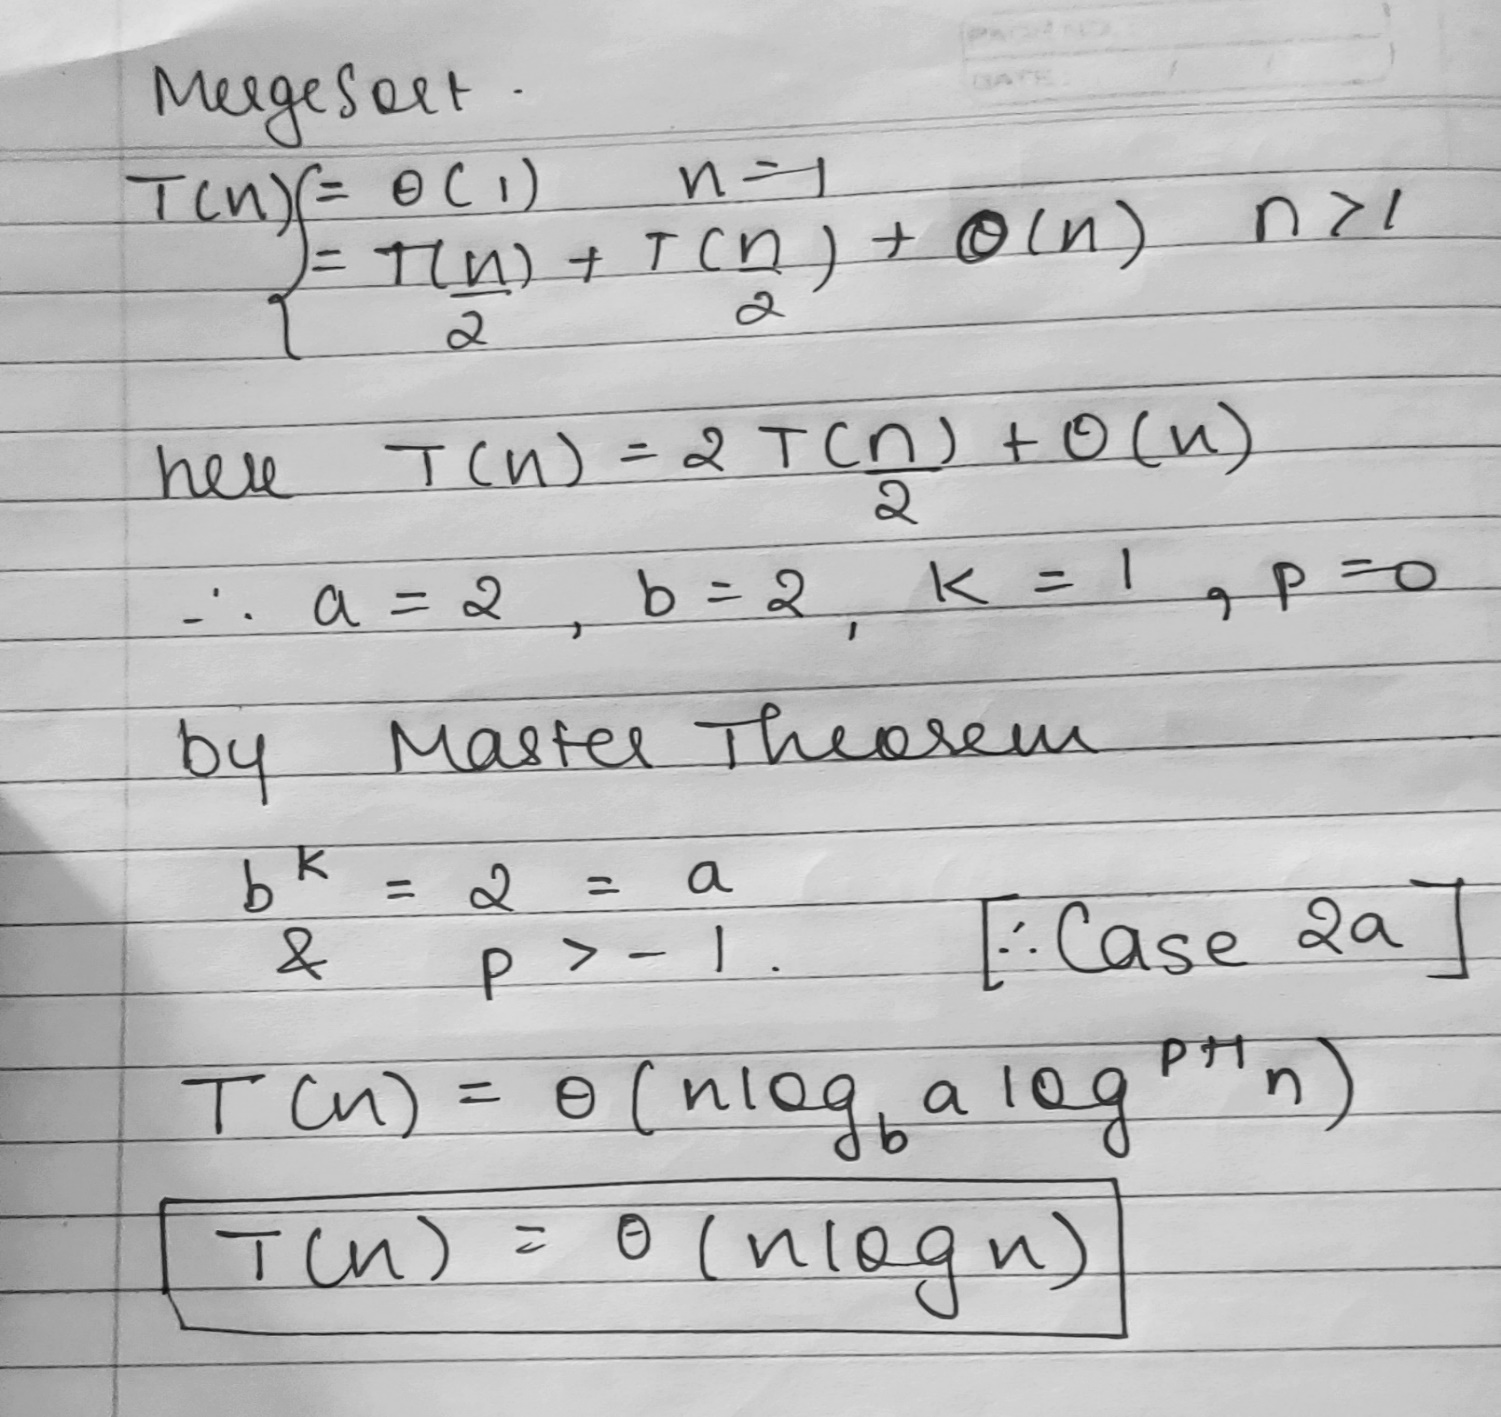 PAGE NO.:
DATE: / /
MergeSort.
T(n) { = θ(1) n=1
= T(n/2) + T(n/2) + θ(n) n>1
here T(n) = 2T(n/2) + θ(n)
∴ a = 2, b = 2, k = 1, p = 0
by Master Theorem
b^k = 2 = a
& p > -1. [∴ Case 2a]
T(n) = θ(nlog_b a log^(p+1) n)
T(n) = θ(nlogn)